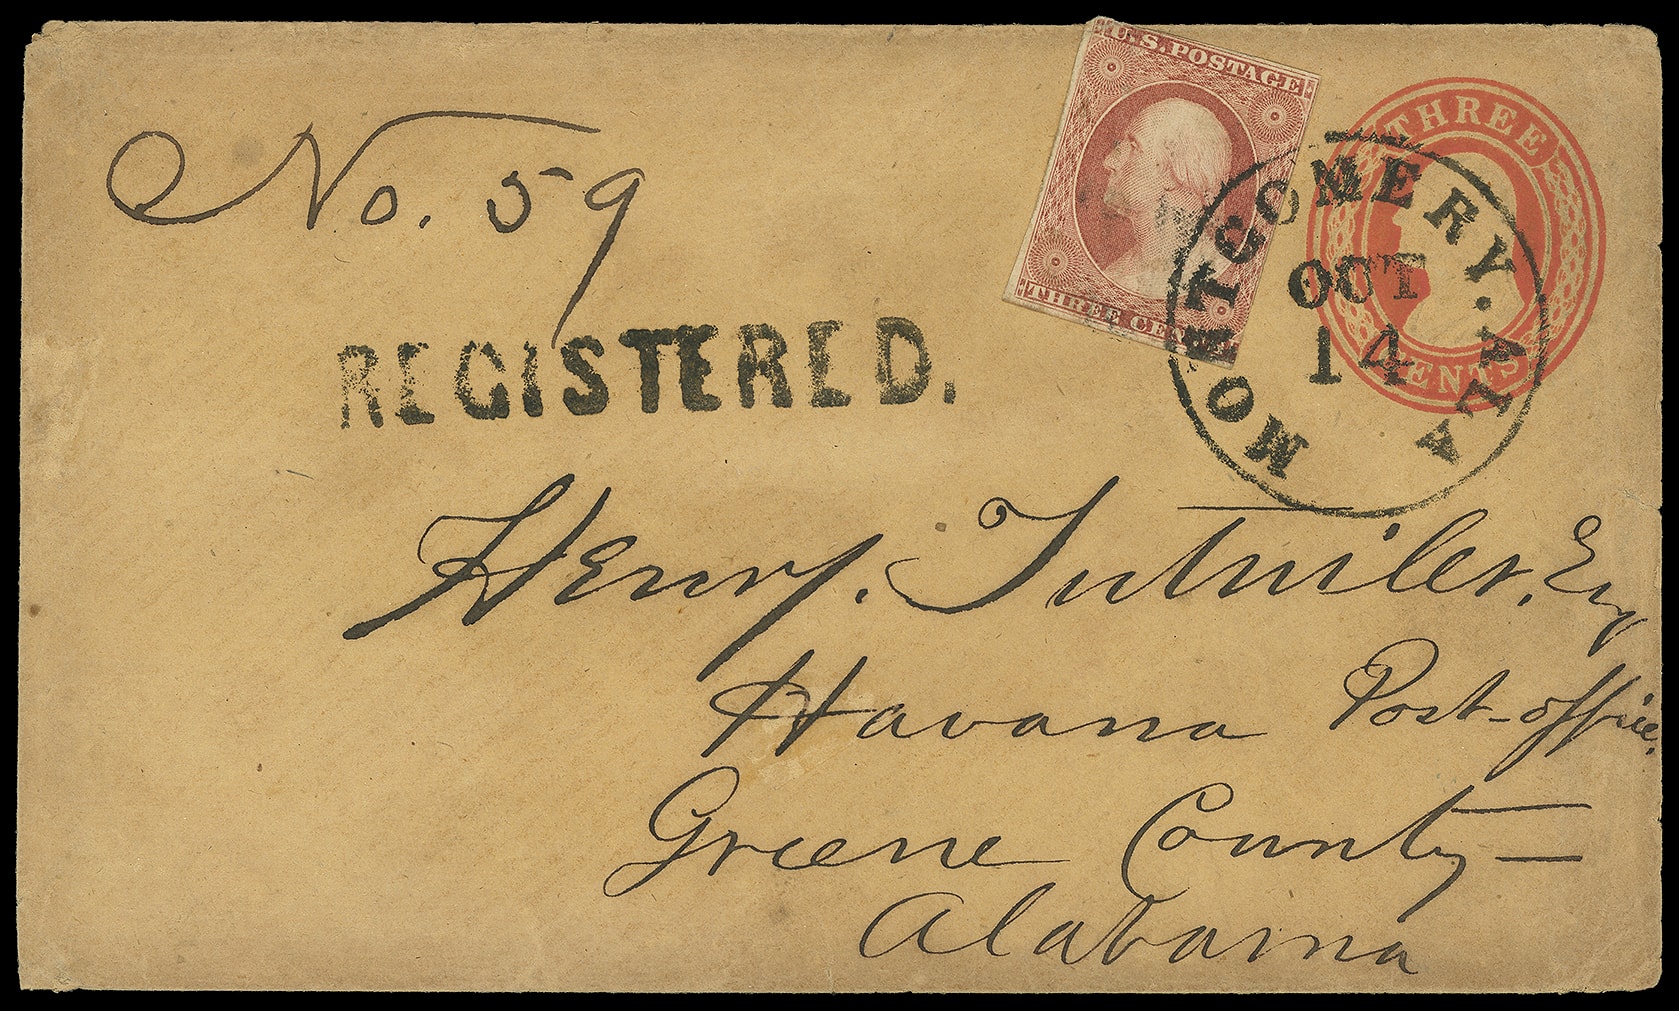 No. 59
U.S. POSTAGE
THREE CENTS
THREE
CENTS
MONTGOMERY. ALA
OCT
14
REGISTERED.
Henry. Tutwiler, Esq
Havana Post-office,
Greene County—
Alabama